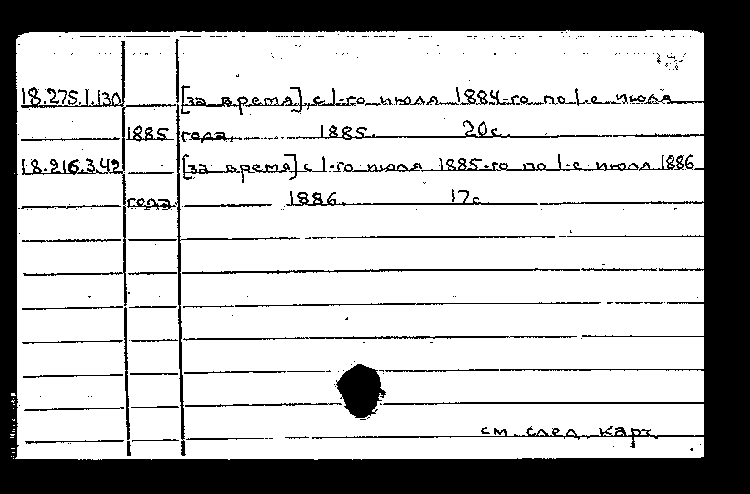 18.275.1.130 [за время], с 1-го июля 1884-го по 1-е июля
1885 года. 1885. 20с.
18.216.3.42 [за время] с 1-го июля 1885-го по 1-е июля 1886
года. 1886. 17с
см. след. карт.